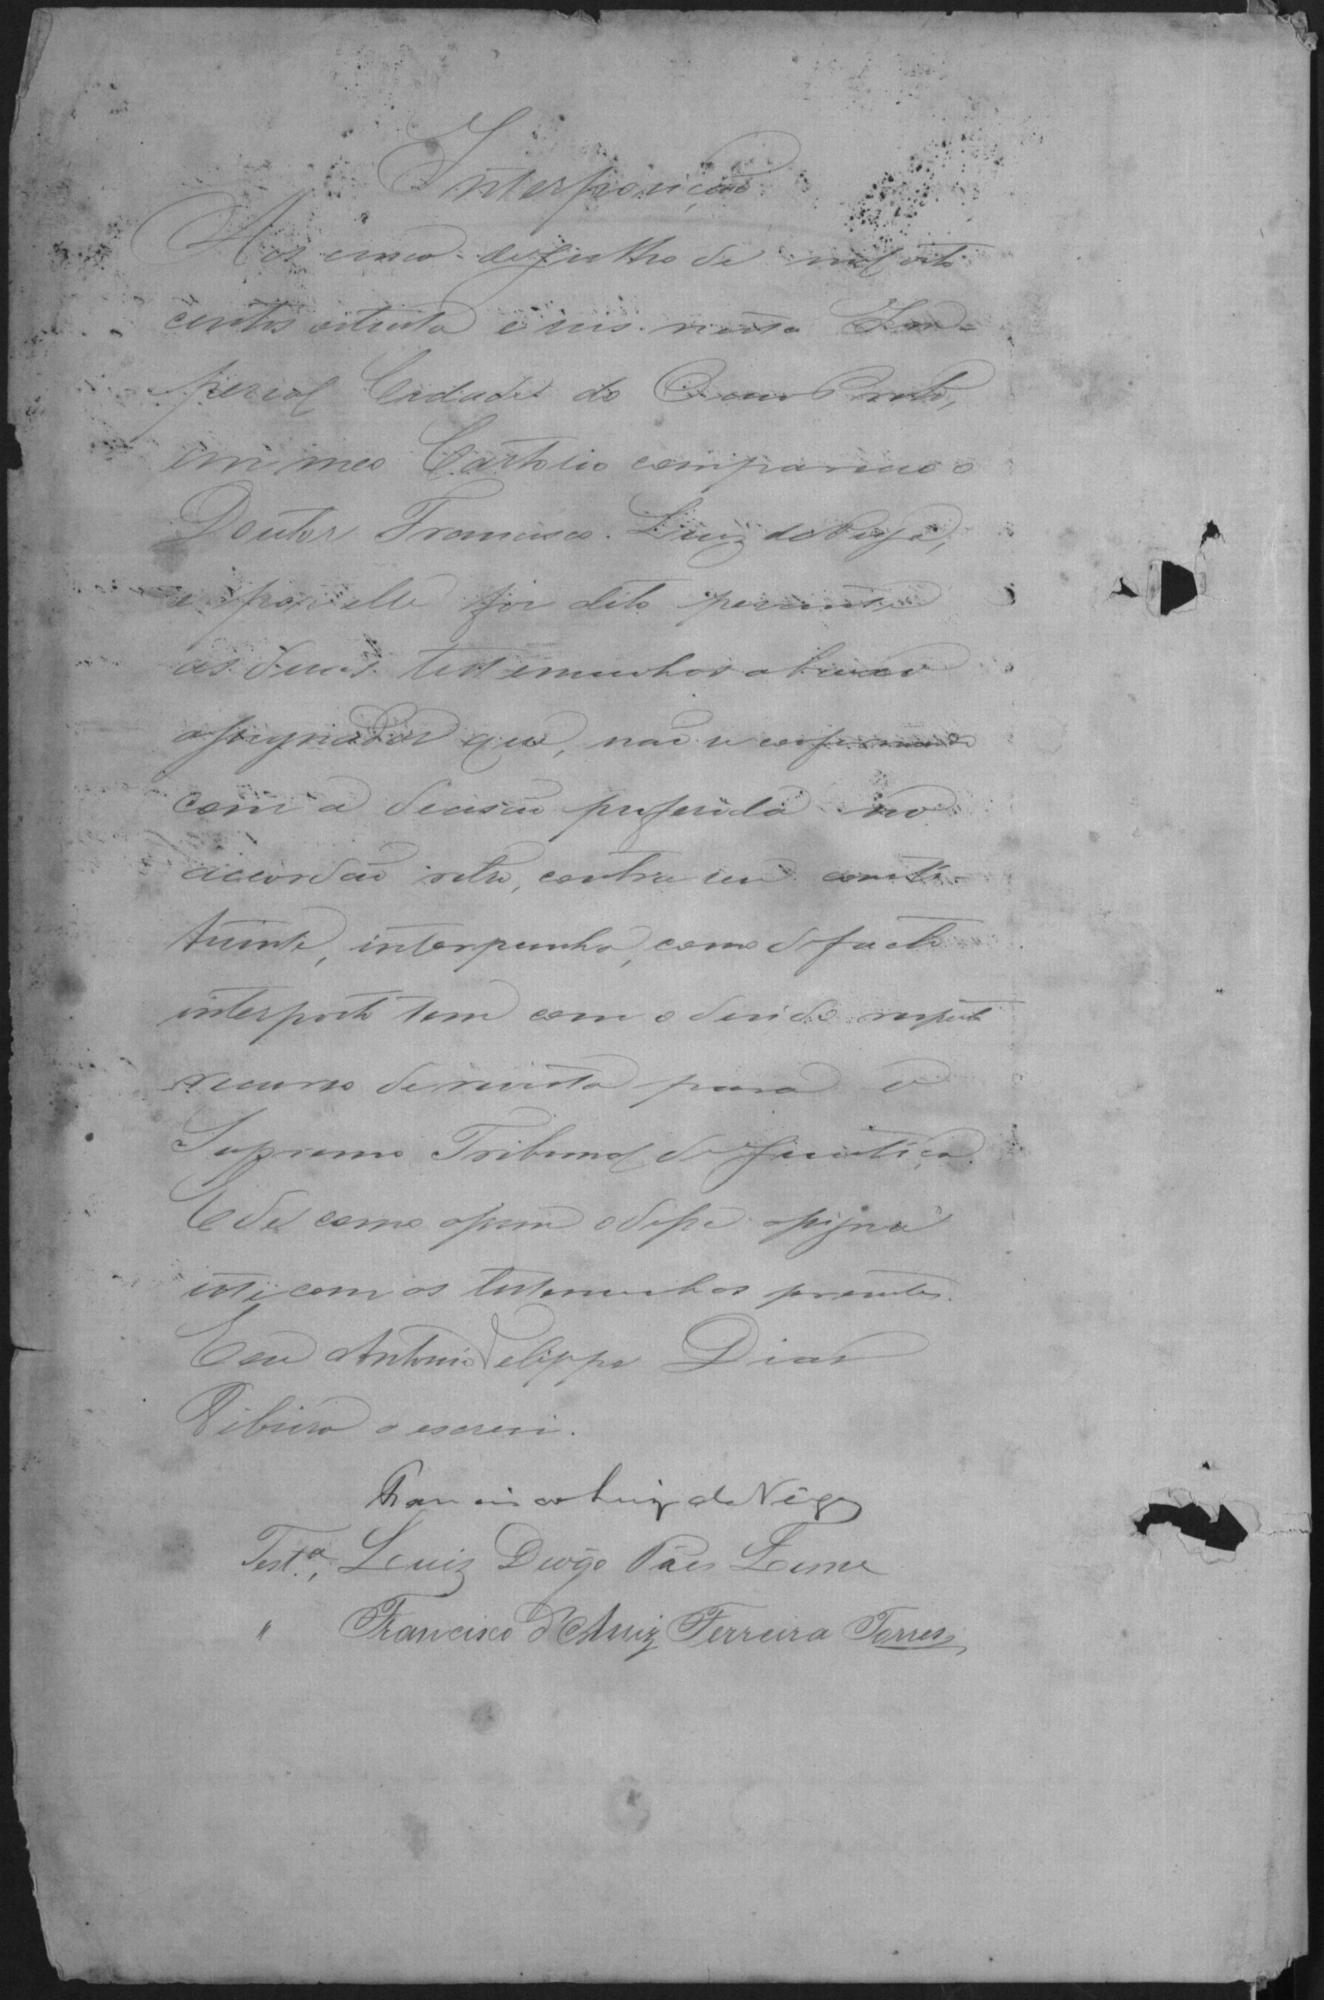 Interposição
Aos cinco de Julho de mil oito
centos oitenta e seis nesta Im-
perial Cidade do Ouro Preto,
em meo Cartorio compareceo o
Doutor Francisco Luiz da Veiga,
e por elle foi dito perante
as duas testemunhas abaixo
assignadas que, não se conformando
com a decisão proferida no
accordão retro, contra seu consti-
tuinte, interpunha, como de facto
interposto tem com o devido respeito
recurso de revista para o
Supremo Tribunal de Justiça.
E de como assim o disse assigna
este com as testemunhas presentes.
Eu Antonio Felippe Dias
Ribeiro o escrevi.
Francisco Luiz da Veiga
Test.ª, Luiz Diogo Paes Leme
" Francisco d'Muiz Ferreira Torres